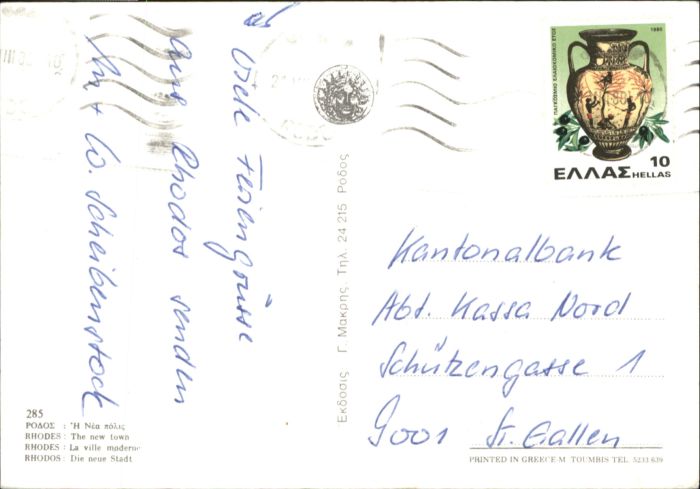 Viele Feriengrüsse
aus Rhodos senden
W. Scheibenstock
285
ΡΟΔΟΣ : Ἡ Νέα πόλις
RHODES : The new town
RHODES : La ville moderne
RHODOS : Die neue Stadt
Εκδοσις Γ. Μακρης Τηλ. 24 215 Ροδος
ΠΑΓΚΟΣΜΙΟ ΕΛΑΙΟΚΟΜΙΚΟ ΕΤΟΣ
1980
10
ΕΛΛΑΣ HELLAS
Kantonalbank
Abt. Kassa Nord
Schützengasse 1
9001 St. Gallen
PRINTED IN GREECE-M TOUMBIS TEL 5233 639